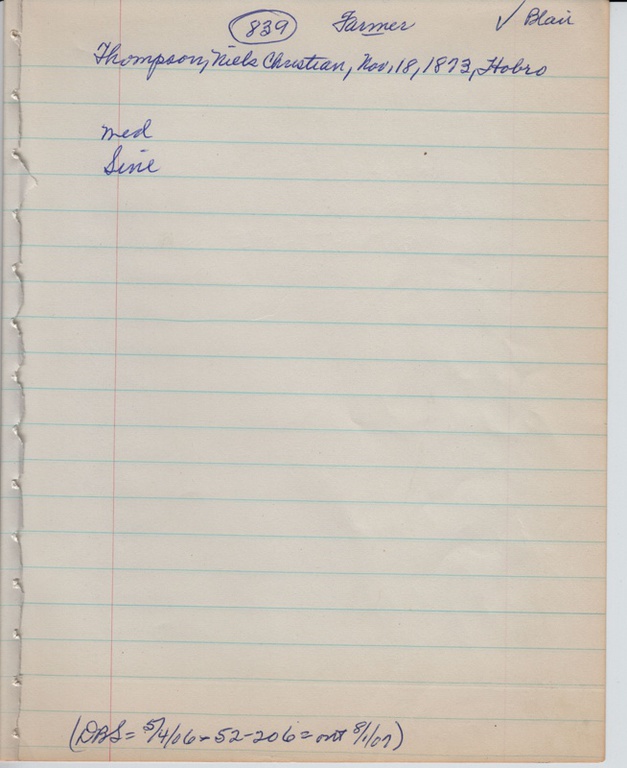 839 Farmer ✓ Blair
Thompson, Niels Christian, Nov, 18, 1873, Hobro
med
Sine
(DBS = 5/4/06 - 52-206 = out 8/1/07)